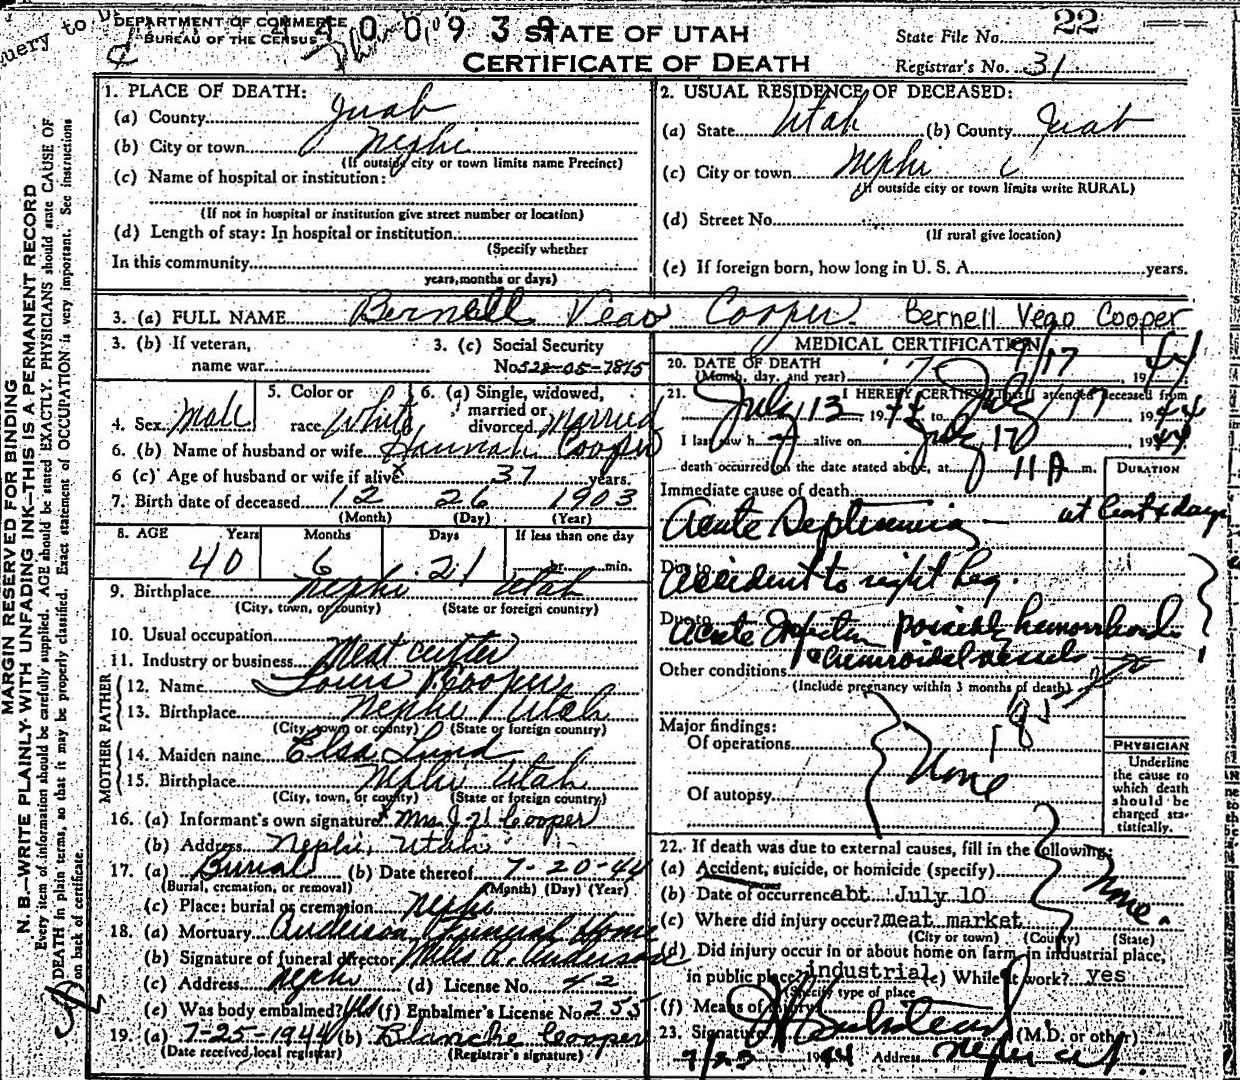 DEPARTMENT OF COMMERCE
BUREAU OF THE CENSUS
STATE OF UTAH
CERTIFICATE OF DEATH
State File No. 22
Registrar's No. 31
MARGIN RESERVED FOR BINDING
N. B.—WRITE PLAINLY WITH UNFADING INK—THIS IS A PERMANENT RECORD
Every item of information should be carefully supplied. AGE should be stated EXACTLY. PHYSICIANS should state CAUSE OF
DEATH in plain terms, so that it may be properly classified. Exact statement of OCCUPATION is very important. See instructions
on back of certificate.
1. PLACE OF DEATH:
(a) County Juab
(b) City or town Nephi
(If outside city or town limits name Precinct)
(c) Name of hospital or institution:
(If not in hospital or institution give street number or location)
(d) Length of stay: In hospital or institution
(Specify whether
In this community
years, months or days)
2. USUAL RESIDENCE OF DECEASED:
(a) State Utah (b) County Juab
(c) City or town Nephi
(If outside city or town limits write RURAL)
(d) Street No.
(If rural give location)
(e) If foreign born, how long in U. S. A. years.
3. (a) FULL NAME Bernell Vego Cooper Bernell Vego Cooper
3. (b) If veteran,
name war
3. (c) Social Security
No. 528-05-7815
4. Sex Male
5. Color or
race White
6. (a) Single, widowed,
married or
divorced Married
6. (b) Name of husband or wife Hannah Cooper
6 (c) Age of husband or wife if alive 37 years.
7. Birth date of deceased 12 26 1903
(Month) (Day) (Year)
8. AGE Years Months Days If less than one day
40 6 21 hr. min.
9. Birthplace Nephi Utah
(City, town, or county) (State or foreign country)
10. Usual occupation
Meat cutter
11. Industry or business
FATHER
12. Name Louis Cooper
13. Birthplace Nephi Utah
(City, town or county) (State or foreign country)
MOTHER
14. Maiden name Elsa Lund
15. Birthplace Nephi Utah
(City, town, or county) (State or foreign country)
16. (a) Informant's own signature Mrs. Cooper
(b) Address Nephi, Utah
17. (a) Burial (b) Date thereof 7-20-44
(Burial, cremation, or removal) (Month) (Day) (Year)
(c) Place: burial or cremation Nephi
18. (a) Mortuary Anderson Funeral Home
(b) Signature of funeral director Anderson
(c) Address Nephi (d) License No. 42
(e) Was body embalmed? Yes (f) Embalmer's License No. 255
19. (a) 7-25-1944 (b) Blanche Cooper
(Date received local registrar) (Registrar's signature)
MEDICAL CERTIFICATION
20. DATE OF DEATH
(Month, day, and year) 7/17, 1944
21. I HEREBY CERTIFY That I attended deceased from
July 13 1944 to July 17 1944
I last saw h alive on July 17 1944
death occurred on the date stated above, at 11 A m.
DURATION
Immediate cause of death
Acute Septicemia at least 4 days
Due to
Accident to right leg.
Due to
Acute Infection possibly hemorrhoids
Other conditions
(Include pregnancy within 3 months of death)
Major findings:
Of operations
None
Of autopsy
PHYSICIAN
Underline
the cause to
which death
should be
charged sta-
tistically.
22. If death was due to external causes, fill in the following:
(a) Accident, suicide, or homicide (specify)
(b) Date of occurrence abt July 10
None.
(c) Where did injury occur? meat market
(City or town) (County) (State)
(d) Did injury occur in or about home on farm, in industrial place,
in public place? industrial (e) While at work? yes
(Specify type of place
(f) Means of injury
23. Signature (M.D. or other)
1944 Address Nephi Ut